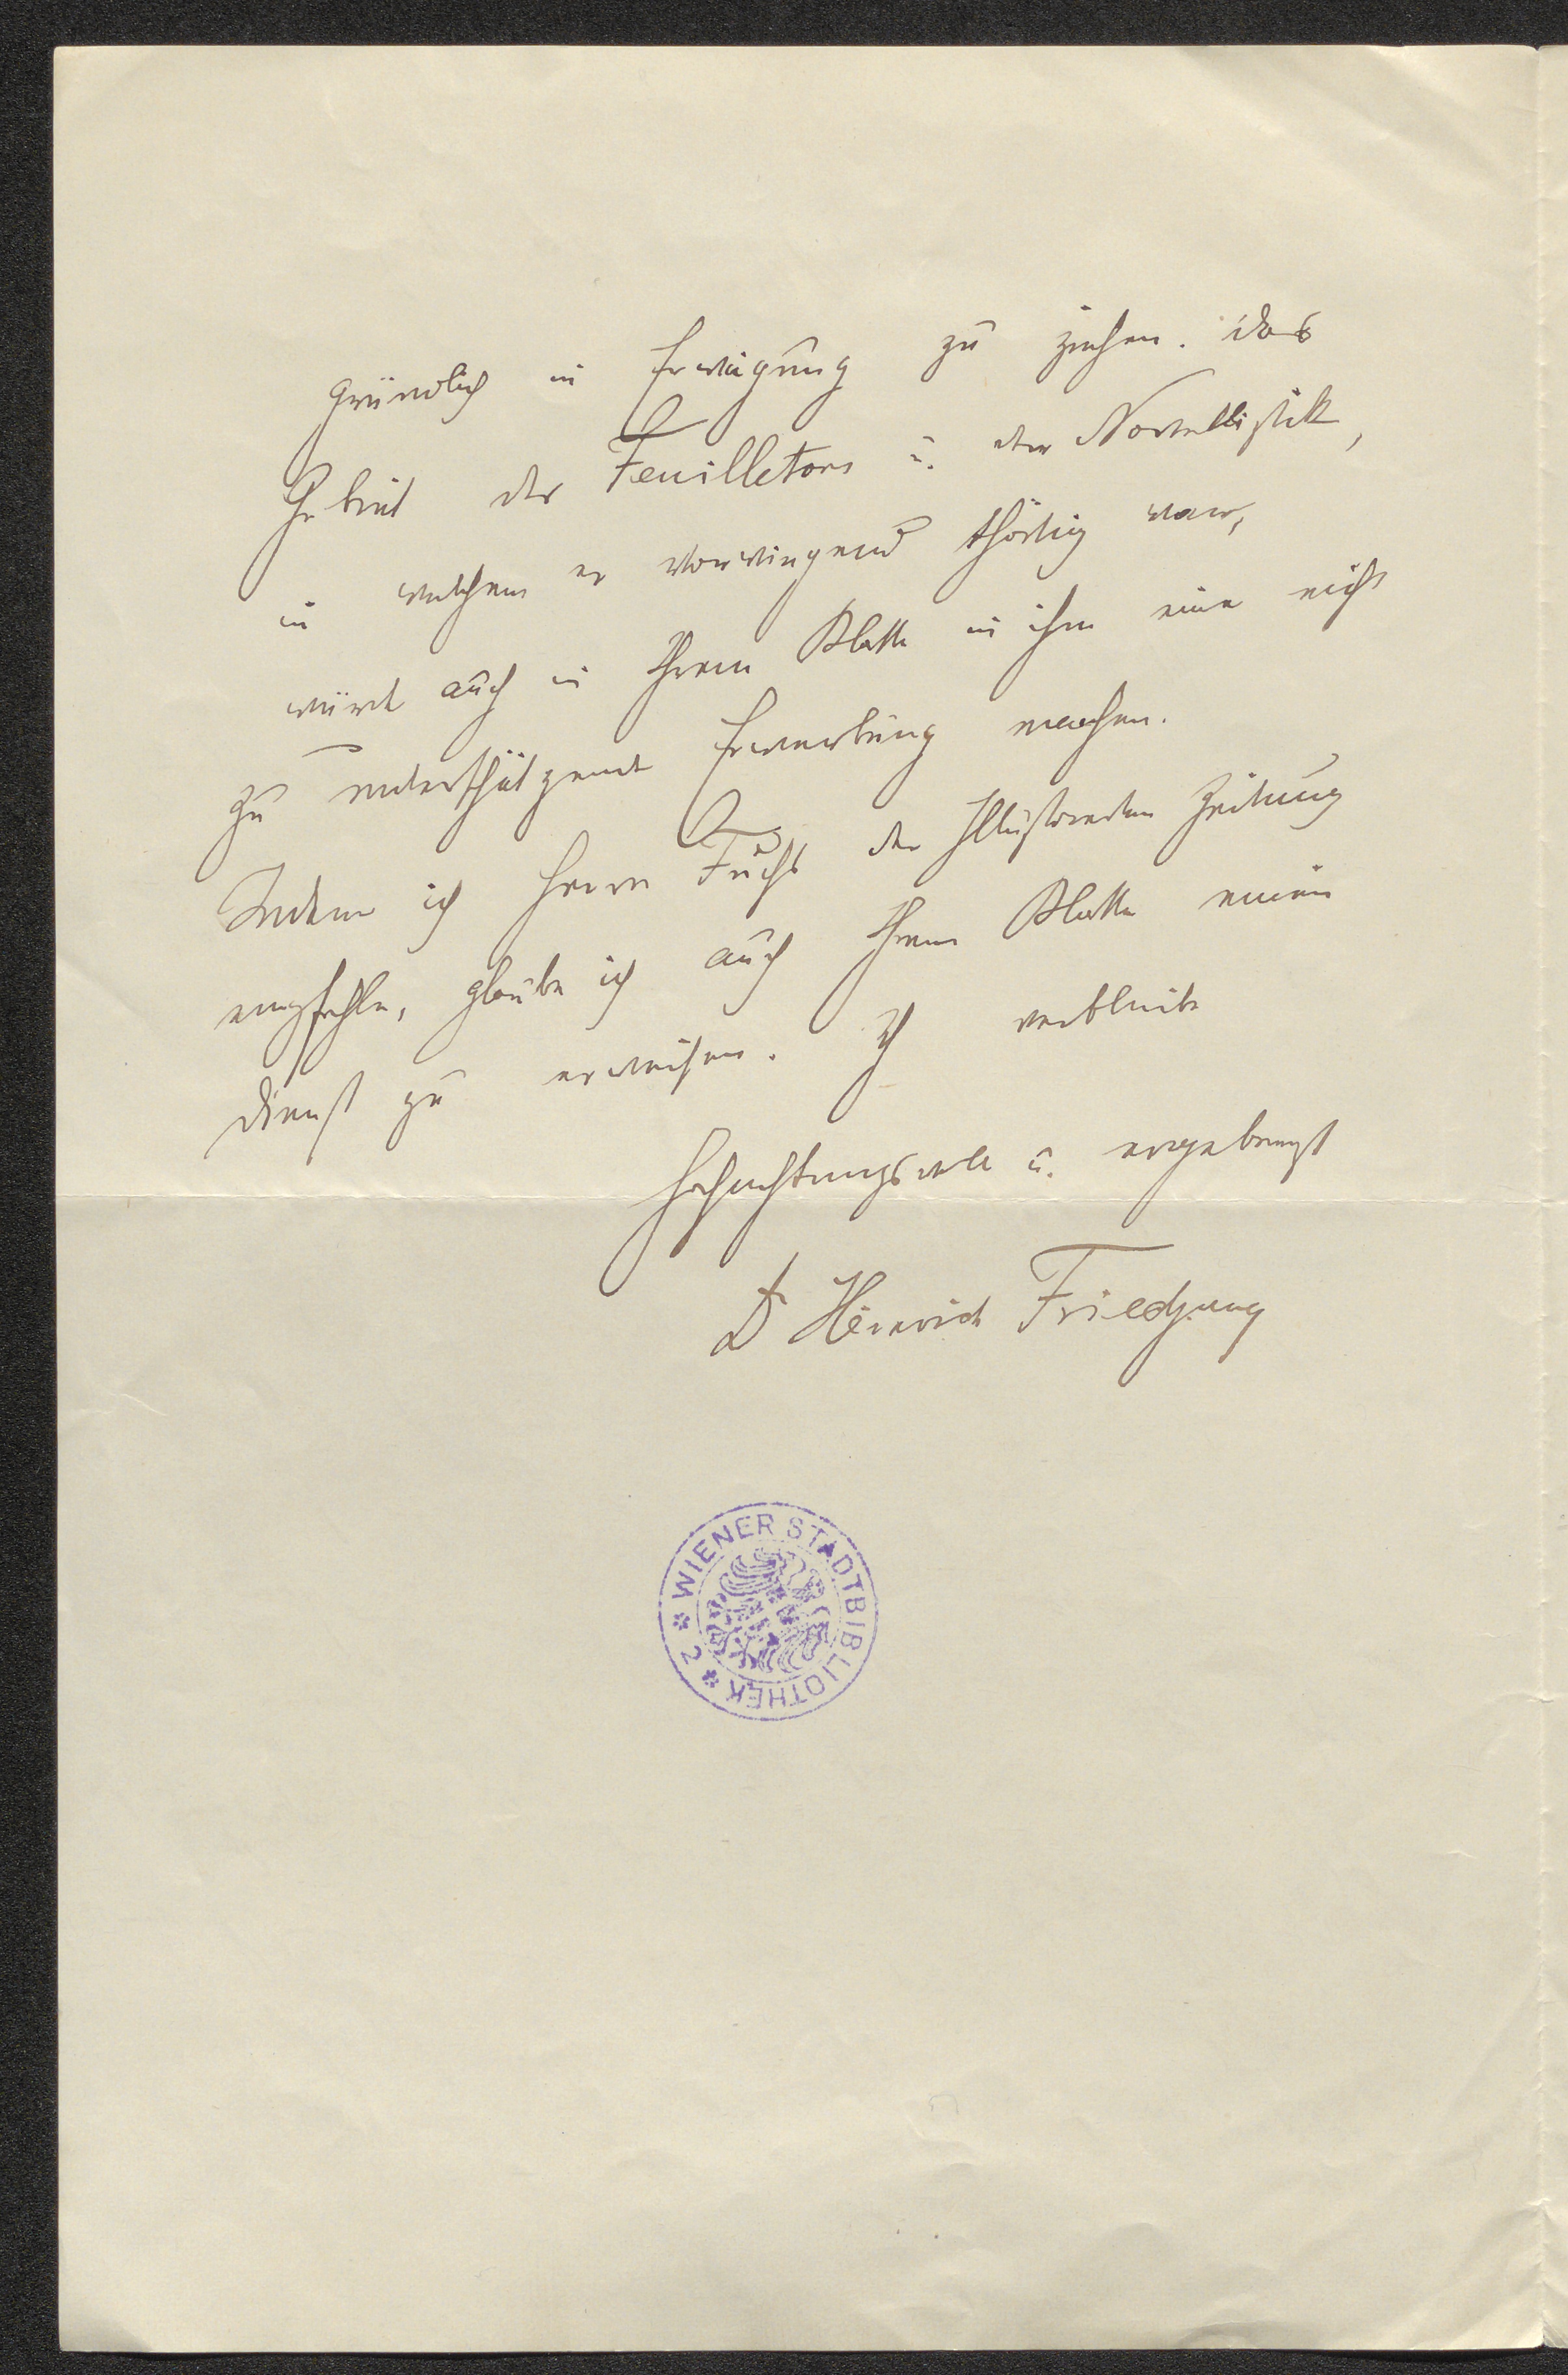 gründlich in Erwägung zu ziehen. Das
Gebiet des Feuilletons u. der Novellistik,
in welchem er vorwiegend thätig war,
würde auch in Ihrem Blatte in ihm eine nicht
zu unterschätzende Erwerbung machen.
Indem ich Herrn Fuchs der Illustrirten Zeitung
empfehle, glaube ich auch Ihrem Blatte einen
Dienst zu erweisen. Ich verbleibe
Hochachtungsvoll u. ergebenst
Dr Heinrich Friedjung
* WIENER STADTBIBLIOTHEK * 2